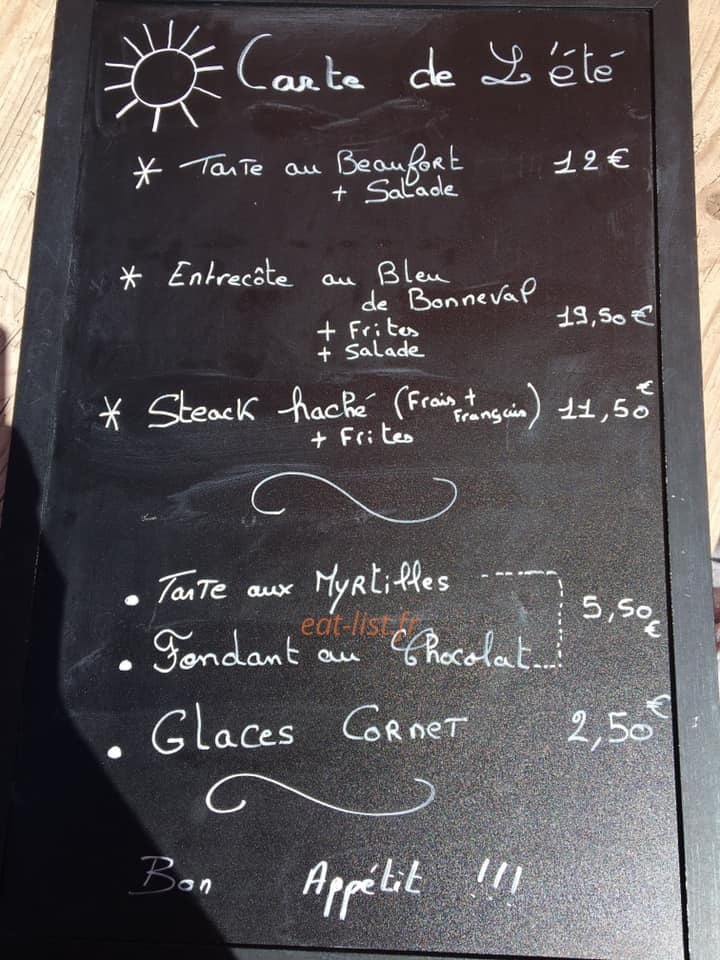 Carte de L'été
* Tarte au Beaufort 12€
+ Salade
* Entrecôte au Bleu
de Bonneval
19,50€
+ Frites
+ Salade
* Steack haché (Frais + Français) 11,50€
+ Frites
• Tarte aux Myrtilles
5,50€
eat-list.fr
• Fondant au Chocolat...
• Glaces Cornet 2,50€
Bon Appétit !!!